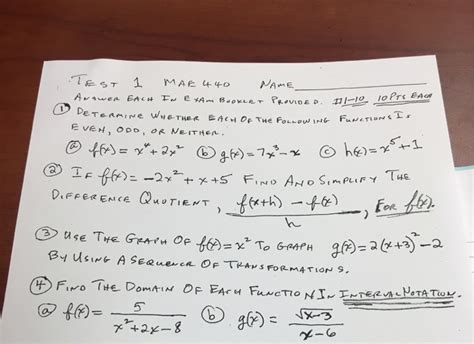 TEST 1 MAE 440 NAME
ANSWER EACH IN EXAM BOOKLET PROVIDED. #1-10 10 PTS EACH
① DETERMINE WHETHER EACH OF THE FOLLOWING FUNCTIONS IS
EVEN, ODD, OR NEITHER.
ⓐ f(x) = x⁴ + 2x² ⓑ g(x) = 7x³ - x ⓒ h(x) = x⁵ + 1
② IF f(x) = -2x² + x + 5 FIND AND SIMPLIFY THE
DIFFERENCE QUOTIENT, (f(x+h) - f(x))/h, FOR f(x).
③ USE THE GRAPH OF f(x) = x² TO GRAPH g(x) = 2(x+3)² - 2
BY USING A SEQUENCE OF TRANSFORMATIONS.
④ FIND THE DOMAIN OF EACH FUNCTION IN INTERVAL NOTATION.
ⓐ f(x) = 5/(x² + 2x - 8) ⓑ g(x) = √(x-3)/(x-6)